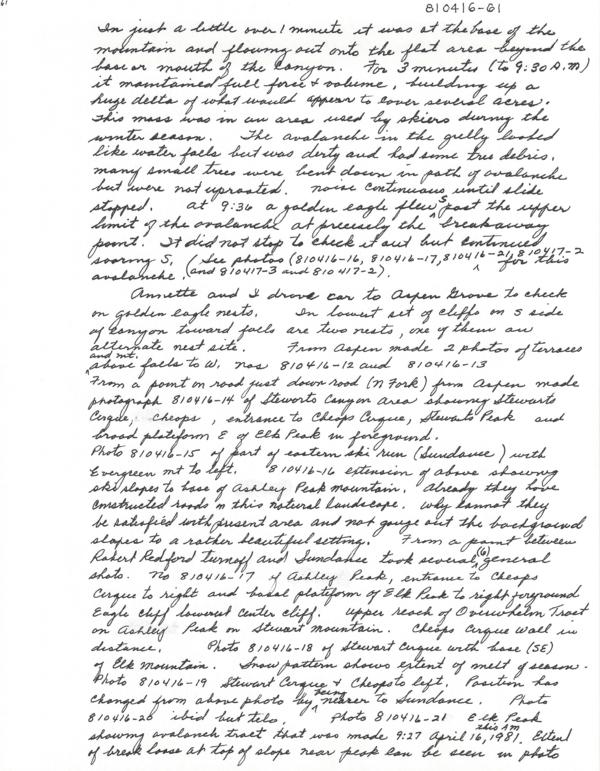 61
810416-61
In just a little over 1 minute it was at the base of the
mountain and flowing out onto the flat area beyond the
base or mouth of the canyon. For 3 minutes (to 9:30 A.M)
it maintained full force & volume, building up a
huge delta of what would appear to cover several acres.
This mass was in an area used by skiers during the
winter season. The avalanche in the gully looked
like water falls but was dirty and had some tree debris.
Many small trees were bent down in path of avalanche
but were not uprooted. Noise continuous until slide
stopped. At 9:36 a golden eagle flew S past the upper
limit of the avalanche at precisely the breakaway
point. It did not stop to check it out but continued
soaring S. (See photos (810416-16, 810416-17, 810416-21, 810417-2 for this
avalanche. (and 810417-3 and 810417-2).
Annette and I drove car to Aspen Grove to check
on golden eagle nests. In lowest set of cliffs on S side
of canyon toward falls are two nests, one of them an
alternate nest site. From Aspen made 2 photos of terraces
and mt.
above falls to W. nos 810416-12 and 810416-13
From a point on road just down road (N Fork) from Aspen made
photograph 810416-14 of Stewarts Canyon area showing Stewarts
Cirque, Cheops, entrance to Cheops Cirque, Stewarts Peak and
broad plateform E of Elk Peak in foreground.
Photo 810416-15 of part of eastern ski run (Sundance) with
Evergreen mt to left. 810416-16 extension of above showing
ski slopes to base of Ashley Peak mountain. Already they have
constructed roads in this natural landscape. Why cannot they
be satisfied with present area and not gouge out the background
slopes to a rather beautiful setting. From a point between
Robert Redford turnoff and Sundance took several (6) general
shots. No 810416-17 of Ashley Peak, entrance to Cheops
Cirque to right and basal plateform of Elk Peak to right foreground
Eagle cliff lowest center cliff. Upper reach of Overwhelm Tract
on Ashley Peak on Stewart mountain. Cheops Cirque Wall in
distance. Photo 810416-18 of Stewart Cirque with base (SE)
of Elk Mountain. Snow pattern shows extent of melt of season.
Photo 810416-19 Stewart Cirque & Cheops to left. Position has
changed from above photo by being nearer to Sundance. Photo
810416-20 ibid but tele. Photo 810416-21 Elk Peak
showing avalanch tract that was made 9:27 this AM April 16, 1981. Extent
of break loose at top of slope near peak can be seen in photo